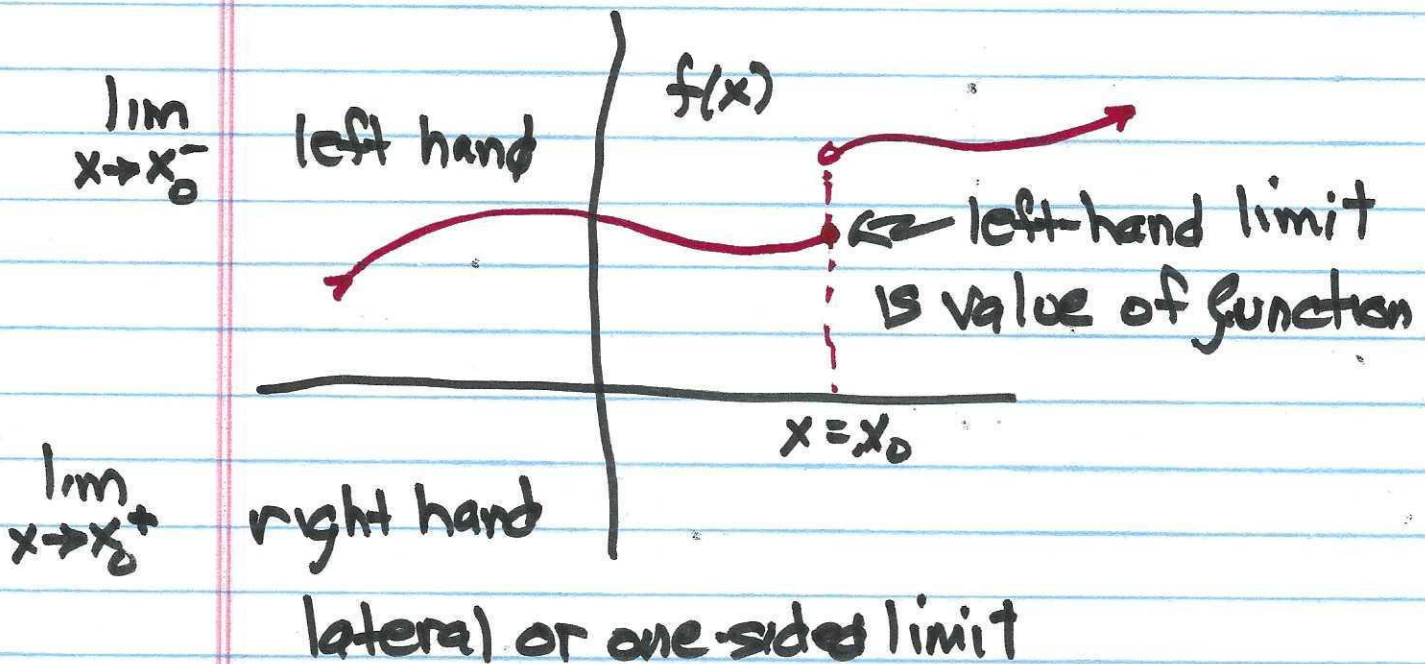 lim
x→x₀⁻
left hand
f(x)
left-hand limit
is value of function
x = x₀
lim
x→x₀⁺
right hand
lateral or one-sided limit